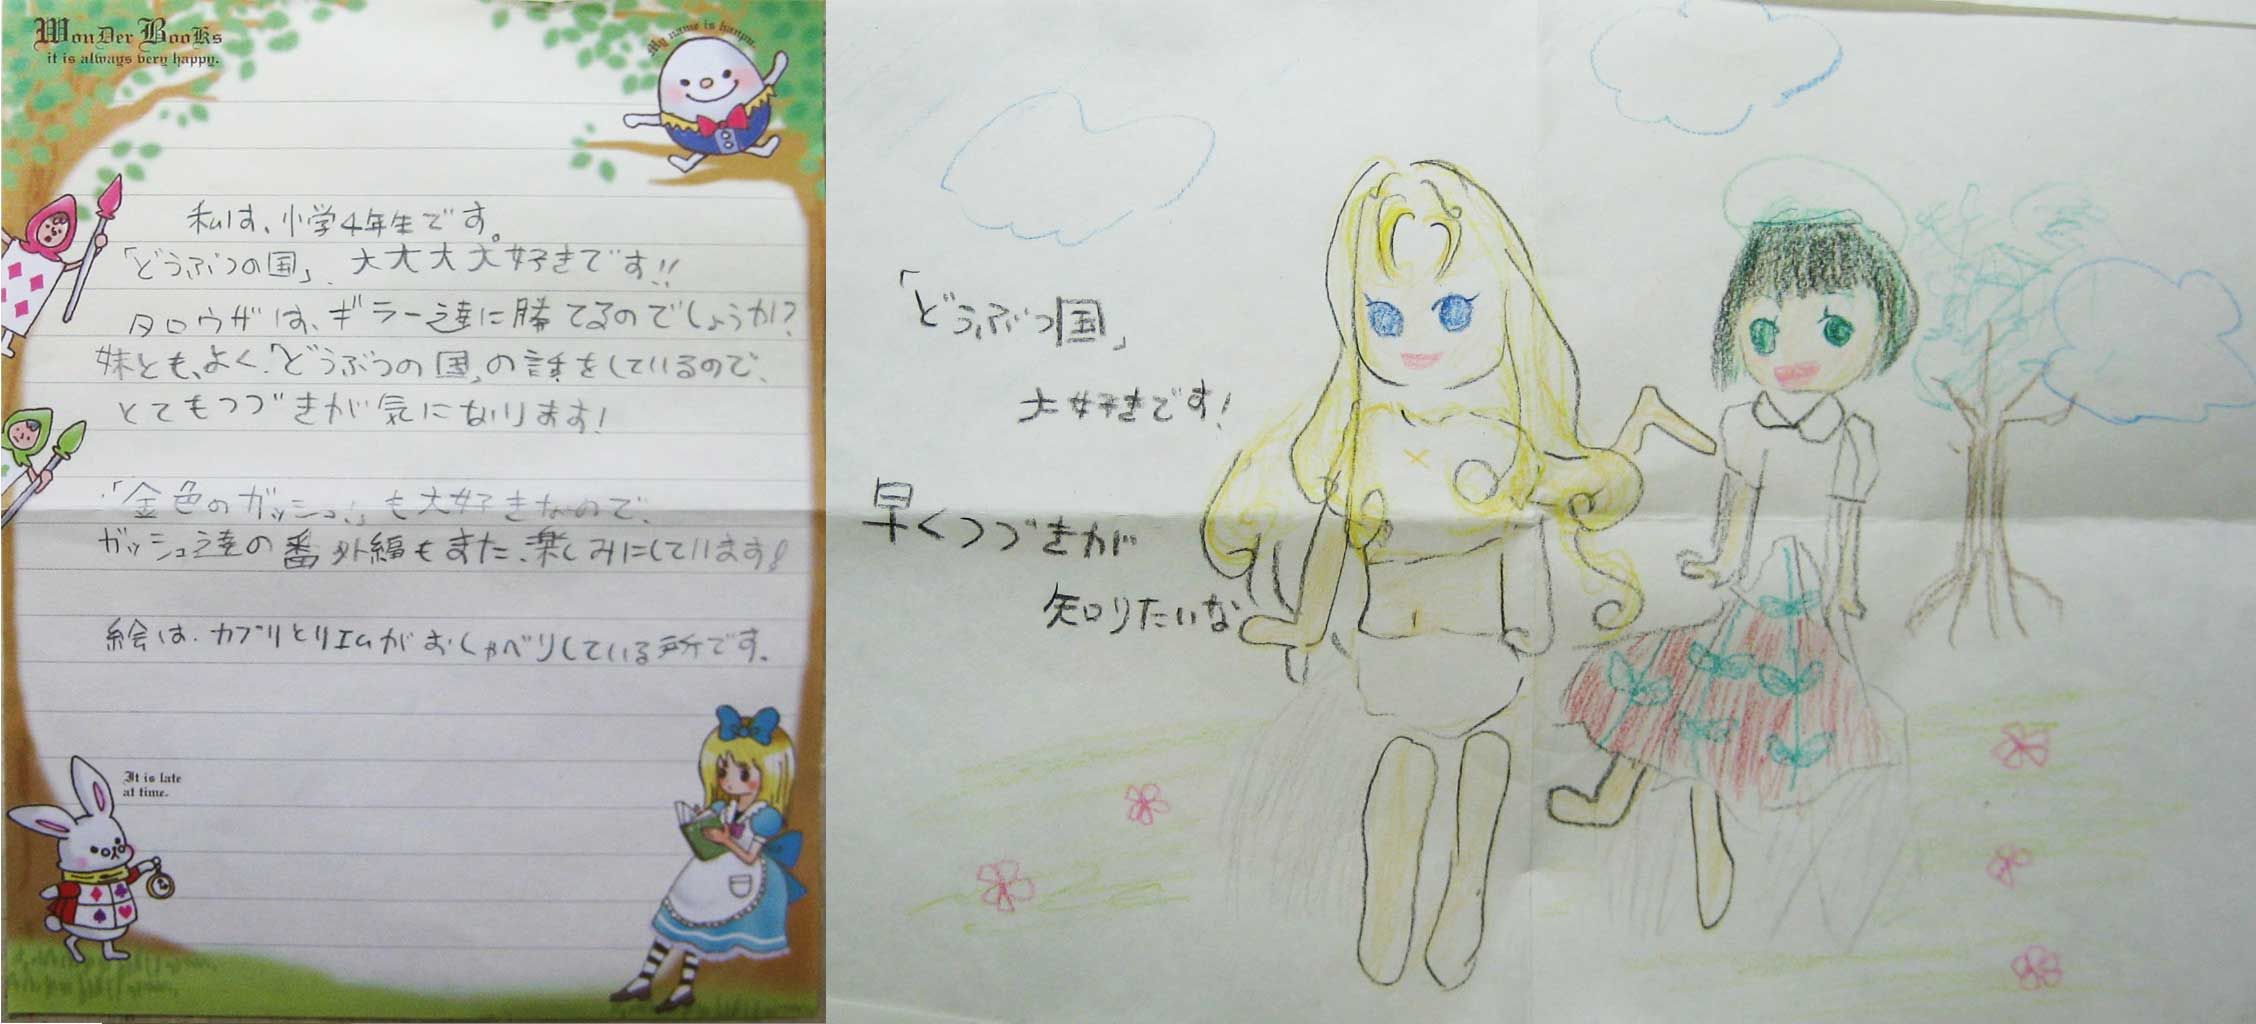 WonDer BooKs
it is always very happy.
My name is hanpu.
私は、小学4年生です。
「どうぶつの国」、大大大大好きです!!
タロウザは、ギラー達に勝てるのでしょうか?
妹とも、よく「どうぶつの国」の話をしているので、
とてもつづきが気になります!
「金色のガッシュ!」も大好きなので、
ガッシュ達の番外編もまた、楽しみにしています!
絵は、カプリとリエムがおしゃべりしている所です。
It is late
at time.
「どうぶつ国」
大好きです!
早くつづきが
知りたいな